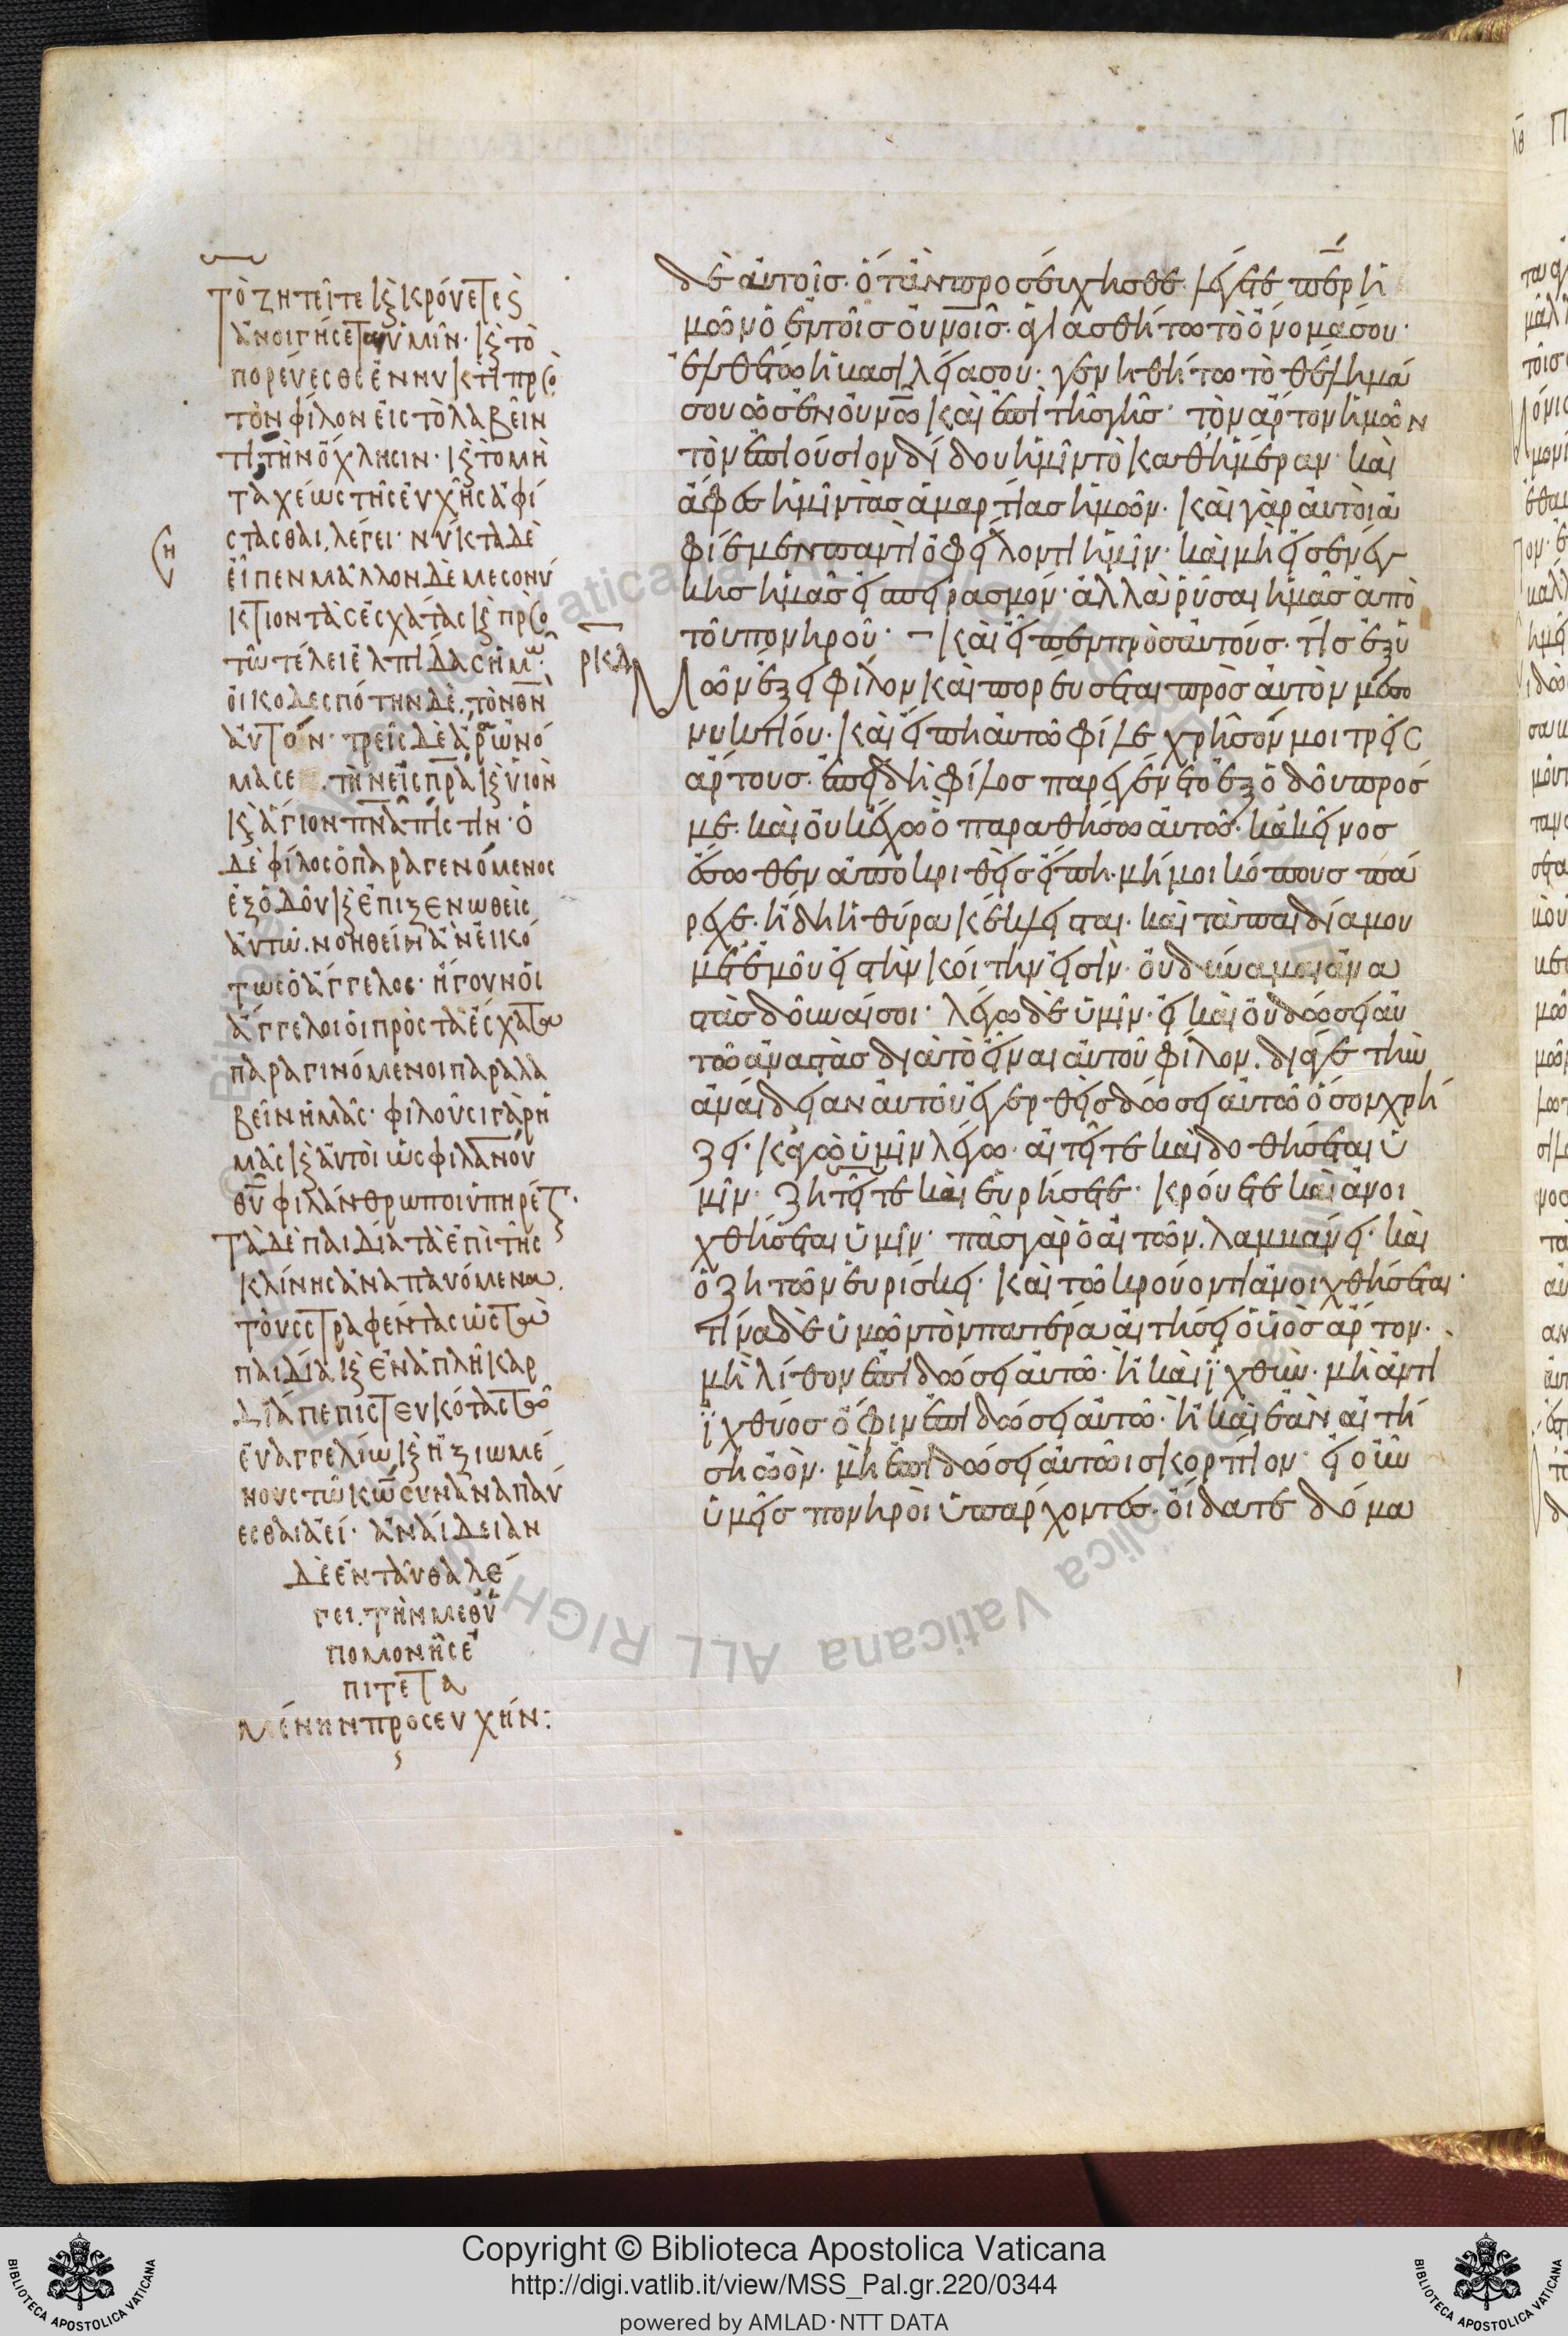 Τὸ ζητεῖτε κ(αὶ) κρούετε κ(αὶ)
ἀνοιγήσεται ὑμῖν· κ(αὶ) τὸ
πορεύεσθε ἐν νυκτὶ πρὸ(ς)
τὸν φίλον εἰς τὸ λαβεῖν
τὶ τὴν ὄχλησιν· κ(αὶ) τὸ μὴ
ταχέως τῆς εὐχῆς ἀφί
στασθαι, λέγει· νύκτα δὲ
εἶπεν μᾶλλον δὲ μεσονύ
κτιον τὰς ἐσχάτας κ(αὶ) πρὸ(ς)
τῷ τέλει ἐλπίδας ἡμῶ(ν)·
οἰκοδεσπότην δὲ, τὸν θν
αὐτόν· τρεῖς δὲ ἄρ(τους) ὠνό
μασε τὴν εἰς πρα κ(αὶ) υἱὸν
κ(αὶ) ἅγιον πνα πίστιν· ὁ
δὲ φίλος ὁ παραγενόμενος
ἐξ ὁδοῦ κ(αὶ) ἐπιξενωθεὶς
αὐτῶ. νοηθείη ἂν εἰκό
τως ὁ ἄγγελος· ἤγουν οἱ
ἄγγελοι οἱ πρὸς τὰ ἔσχατα
παραγινόμενοι παραλα
βεῖν ἡμᾶς· φιλοῦσι γὰρ ἡ
μᾶς κ(αὶ) αὐτοὶ ὡς φιλανου
θυ φιλάνθρωποι ὑπηρέτ(αι)·
Τὰ δὲ παιδία τὰ ἐπὶ τῆς
κλίνης ἀναπαυόμενα.
τοὺς στραφέντας ὡς τὰ
παιδία κ(αὶ) ἐν ἁπλῆ καρ
δία πεπιστευκότας τῶ
εὐαγγελίω κ(αὶ) ἠξιωμέ
νους τῶ κω συναναπαύ
εσθαι ἀεί· ἀναίδειαν
δὲ ἐνταῦθα λέ
γει. τὴν μεθ ὑ
πομονῆς ἐ
πιτετα
μένην προσευχήν:
ρκδ
δὲ αὐτοῖς· ὅταν προσεύχησθε. λέγετε περ ἡ
μῶν ὁ ἐν τοῖς οὐνοῖς· ἁγιασθήτω τὸ ὄνομά σου·
ἐλθέτω ἡ βασιλεία σου· γενηθήτω τὸ θέλημά
σου ὡς ἐν οὐνω καὶ ἐπὶ τῆς γῆς· τὸν ἄρτον ἡμῶν
τὸν ἐπιούσιον δίδου ἡμῖν τὸ καθ ἡμέραν· καὶ
ἄφες ἡμῖν τὰς ἁμαρτίας ἡμῶν· καὶ γὰρ αὐτοὶ ἀ
φίεμεν παντὶ ὀφείλοντι ἡμῖν· καὶ μὴ εἰσενέγ
κης ἡμᾶς εἰς πειρασμόν· ἀλλὰ ῥῦσαι ἡμᾶς ἀπὸ
τοῦ πονηροῦ· καὶ εἶπεν πρὸς αὐτούς· τίς ἐξ ὑ
Μῶν ἕξει φίλον καὶ πορεύσεται πρὸς αὐτὸν μέσο
νυκτίου· καὶ εἴπη αὐτῶ φίλε χρῆσόν μοι τρεῖς
ἄρτους· ἐπειδὴ φίλος παρεγένετο ἐξ ὁδοῦ πρός
με· καὶ οὐκ ἔχω ὃ παραθήσω αὐτῶ· κακεῖνος
ἔσωθεν ἀποκριθεὶς εἴπη· μή μοι κόπους πά
ρεχε· ἤδη ἡ θύρα κέκλεισται· καὶ τὰ παιδία μου
μετ ἐμοῦ εἰς τὴν κοίτην εἰσίν· οὐ δύναμαι ἀνα
στὰς δοῦναί σοι· λέγω δὲ ὑμῖν· εἰ καὶ οὐ δώσει αὐ
τῶ ἀναστὰς διὰ τὸ εἶναι αὐτοῦ φίλον. διά γε τὴν
ἀναίδειαν αὐτοῦ ἐγερθεὶς δώσει αὐτῶ ὅσον χρή
ζει· κἀγὼ ὑμῖν λέγω· αἰτεῖτε καὶ δοθήσεται ὑ
μῖν· ζητεῖτε καὶ εὑρήσετε· κρούετε καὶ ἀνοι
χθήσεται ὑμῖν· πᾶς γὰρ ὁ αἰτῶν. λαμβάνει· καὶ
ὁ ζητῶν εὑρίσκει· καὶ τῶ κρούοντι ἀνοιχθήσεται·
τίνα δὲ ὑμῶν τὸν πατέρα αἰτήσει ὁ υἱὸς ἄρτον·
μὴ λίθον ἐπιδώσει αὐτῶ· ἢ καὶ ἰχθύν· μὴ ἀντὶ
ἰχθύος ὄφιν ἐπιδώσει αὐτῶ· ἢ καὶ ἐὰν αἰτή
ση ὠόν· μὴ ἐπιδώσει αὐτῶ σκορπίον· εἰ οὖν
ὑμεῖς πονηροὶ ὑπάρχοντες· οἴδατε δόμα
Copyright © Biblioteca Apostolica Vaticana
http://digi.vatlib.it/view/MSS_Pal.gr.220/0344
powered by AMLAD·NTT DATA